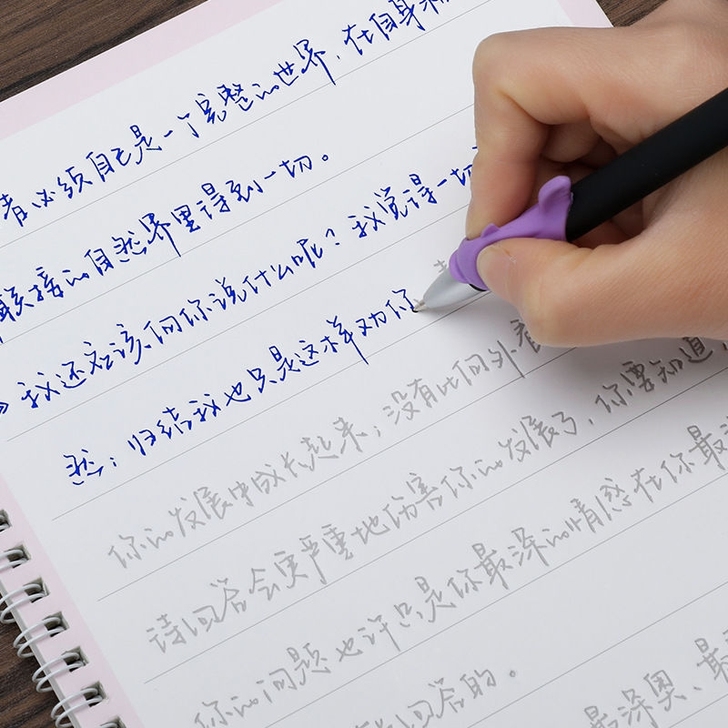 者必须自己是一个完整的世界，在自身和
联接的自然界里得到一切。
我还应该向你说什么呢？我觉得一切
然；归结我也只是这样劝你
你的发展中成长起来；没有比向外看
请回答会更严重地伤害你的发展了，你要知道，
你的问题也许只是你最深的情感在你最深
能回答的。
最深奥、最